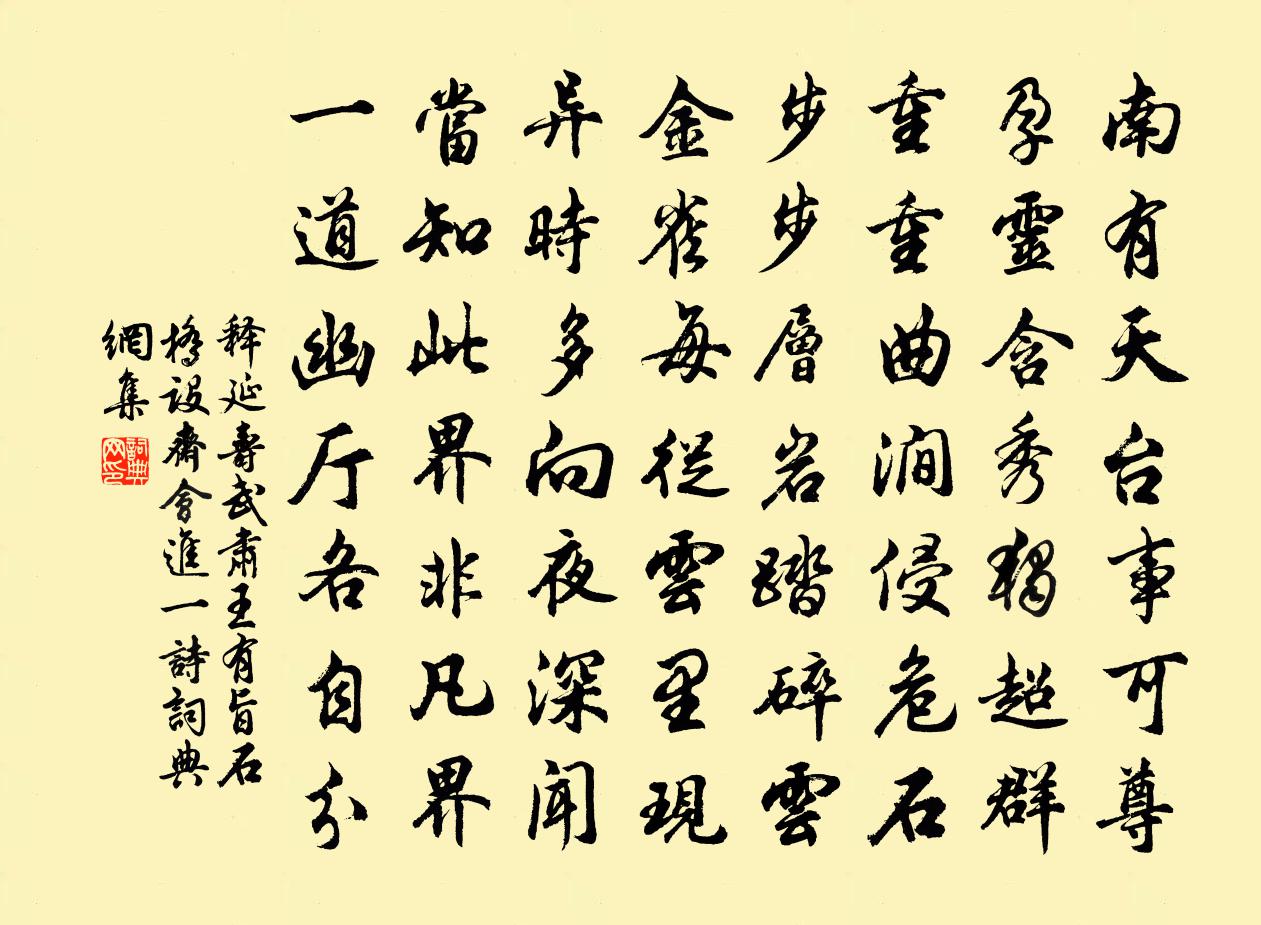 南有天台事可尊
孕靈含秀獨超群
重重曲澗侵危石
步步層岩踏碎雲
金雀每從雲里現
异時多向夜深聞
當知此界非凡界
一道幽厅各自分
释延壽武肅王有旨石
橋設齋會進一詩詞典
網集
詞典
网印